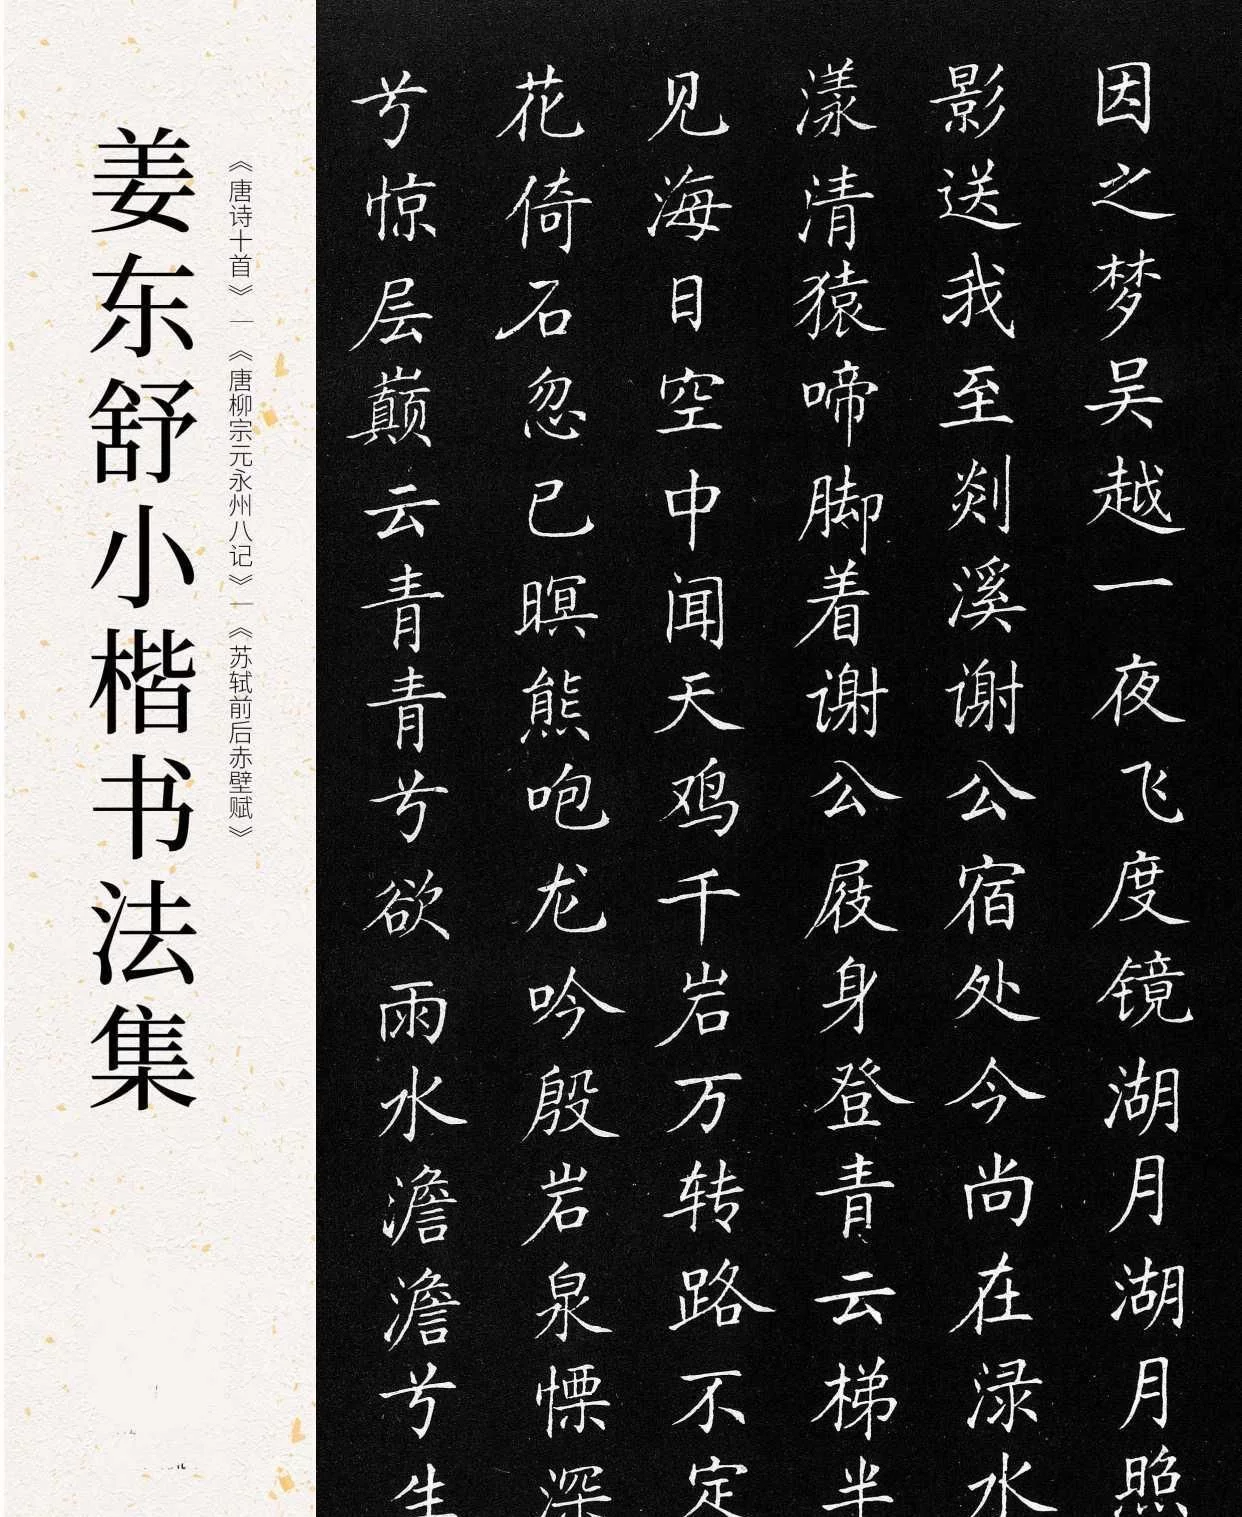 因之梦吴越一夜飞度镜湖月湖月照
影送我至剡溪谢公宿处今尚在渌水
漾清猿啼脚着谢公屐身登青云梯半
见海日空中闻天鸡千岩万转路不定
花倚石忽已暝熊咆龙吟殷岩泉慄深
兮惊层巅云青青兮欲雨水澹澹兮生
《唐诗十首》｜《唐柳宗元永州八记》｜《苏轼前后赤壁赋》
姜东舒小楷书法集